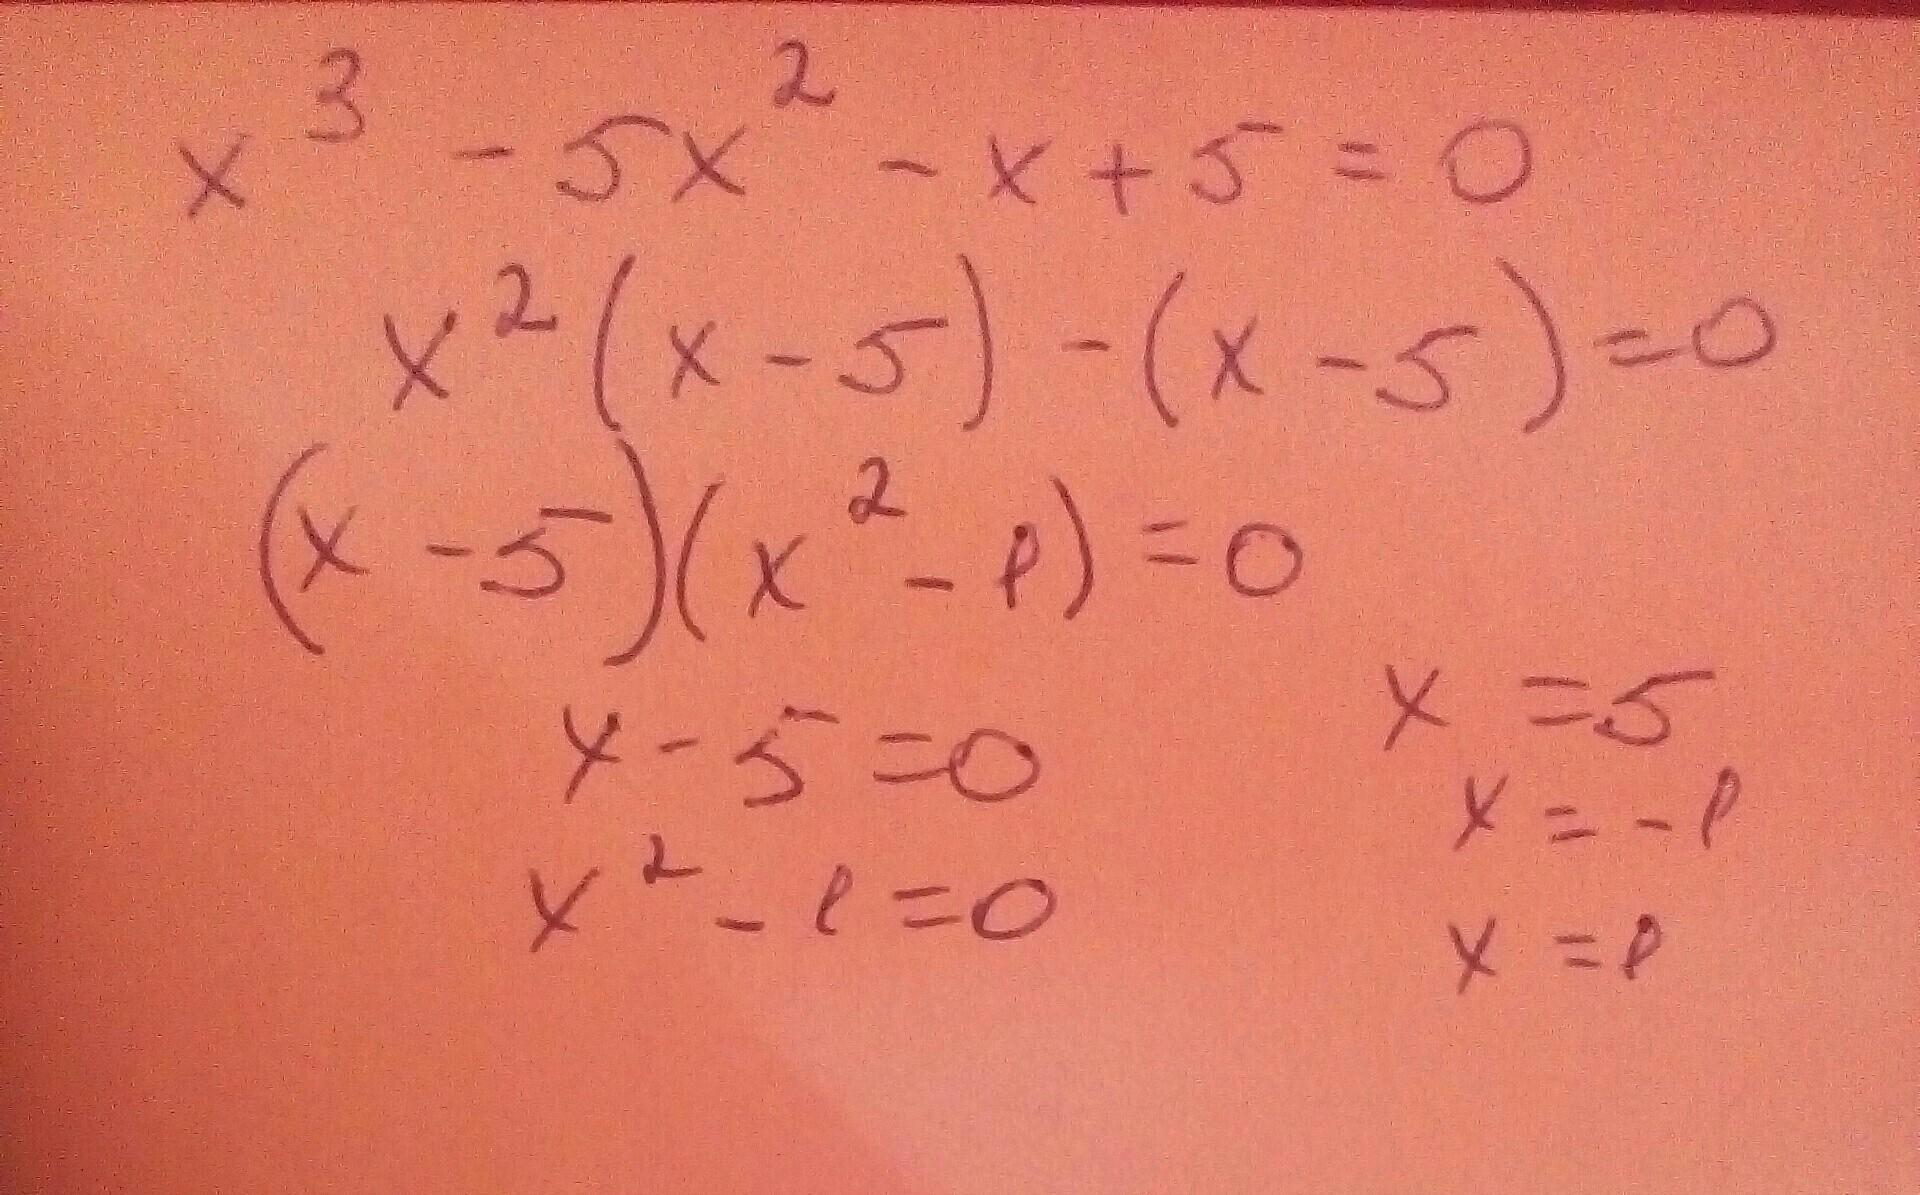 x³ - 5x² - x + 5 = 0
x²(x - 5) - (x - 5) = 0
(x - 5)(x² - 1) = 0
x - 5 = 0
x² - 1 = 0
x = 5
x = -1
x = 1